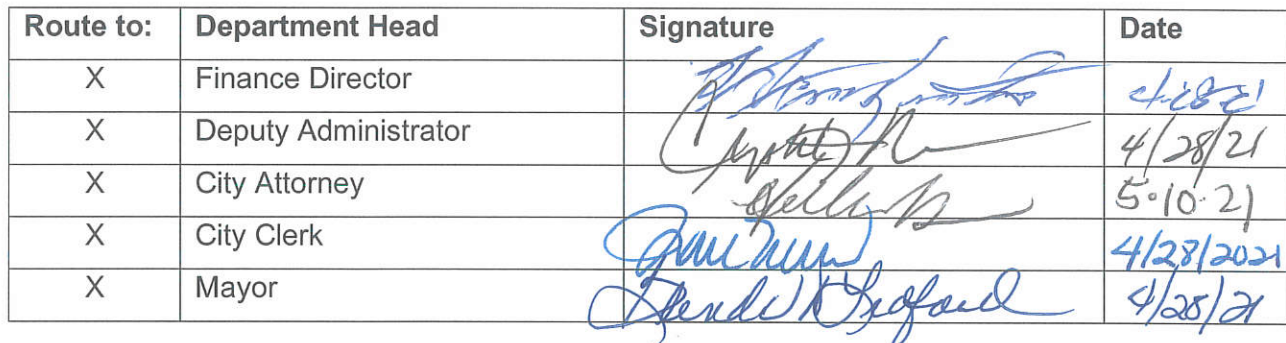 Route to: Department Head Signature Date
X Finance Director 4-28-21
X Deputy Administrator 4/28/21
X City Attorney 5-10-21
X City Clerk 4/28/2021
X Mayor 4/28/21